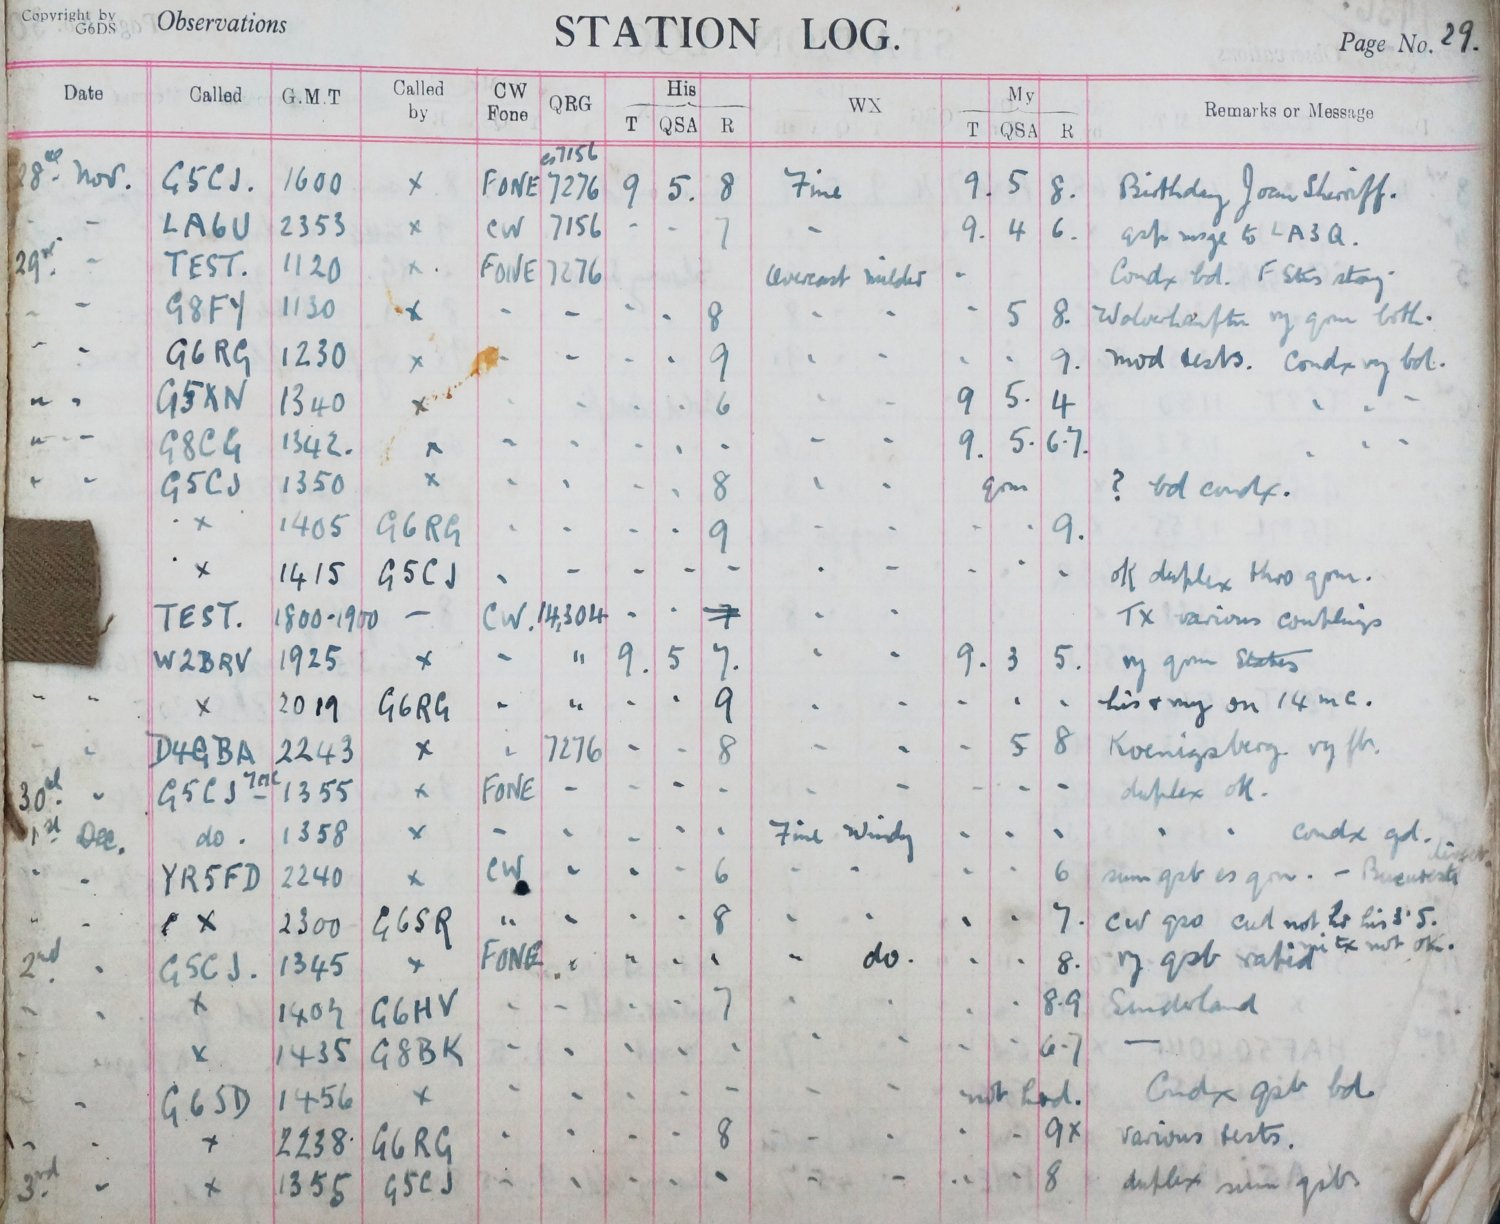 Copyright by G6DS Observations STATION LOG. Page No. 29.
Date Called G.M.T Called by CW Fone QRG His T QSA R WX My T QSA R Remarks or Message
28 Nov. G5CJ. 1600 x FONE es 7156 7276 9 5. 8 Fine 9. 5 8. Birthday Joan Sherriff.
- - LA6U 2353 x CW 7156 - - 7 - 9. 4 6. qsp msge to LA3Q.
29 - TEST. 1120 x. FONE 7276 Overcast milder - Condx bd. F Stns strong
- - G8FY 1130 x - - - - 8 - - - 5 8. Wolverhampton vy qrm both.
- - G6RG 1230 x - - - - 9 - - - - 9. mod tests. Condx vy bd.
" " G5XN 1340 x - - - - 6 - - 9 5. 4 " " "
" - - G8CG 1342. x - - - - - - - 9. 5. 6-7. " " "
" " G5CJ 1350 x - - - - 8 - - qrm ? bd condx.
x 1405 G6RG - - - - 9 - - - - 9.
x 1415 G5CJ - - - - - - - - - - ok duplex thro qrm.
TEST. 1800-1900 - CW. 14,304 - - 7 - - TX various couplings
W2BRV 1925 x - " 9. 5 7. - - 9. 3 5. vy qrm States
" " x 2019 G6RG - " - - 9 - - - - - his & my on 14 mc.
- " D4GBA 2243 x - 7276 - - 8 - - - 5 8 Koenigsberg. vy fb.
30 " G5CJ 7mc 1355 x FONE - - - - - - - - - duplex ok.
1st Dec. do. 1358 x - - - - - Fine Windy - - - " " condx gd.
" " YR5FD 2240 x CW - - - 6 - - 6 sum qsb es qrm. - Bucuresti
" - x 2300 G6SR " - - - 8 - - - - 7. CW qso cud not hr his 3.5.
2nd " G5CJ. 1345 x FONE - - - - - do. - - 8. vy qsb rapid mi tx not ok.
- " x 1407 G6HV - - - - 7 - - - - 8-9 Sunderland
- - x 1435 G8BK - - - - - - - - - 6-7 —
- G6SD 1456 x - - - - - - - not hrd. Condx qsb bd.
" - x 2238. G6RG - - - - 8 - - - - 9x various tests.
3rd " x 1355 G5CJ - - - - - - - - - 8 duplex sum qsb.